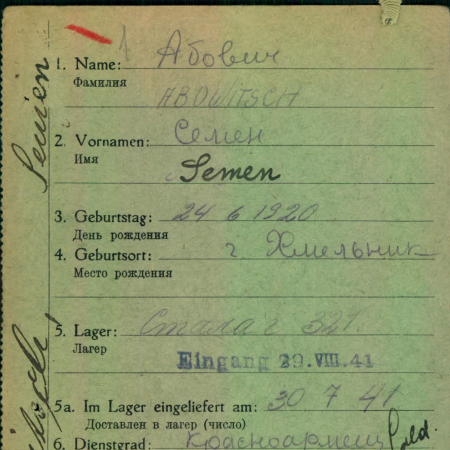 1. Name: Абович
Фамилия
ABOWITSCH
2. Vornamen: Семен
Имя
Semen
3. Geburtstag: 24 6 1920
День рождения
4. Geburtsort: г Хмельник
Место рождения
5. Lager: Сталаг 321.
Лагер
Eingang 29.VIII.41
5a. Im Lager eingeliefert am: 30 7 41
Доставлен в лагер (число)
6. Dienstgrad: Красноармеец Sold.
Semen